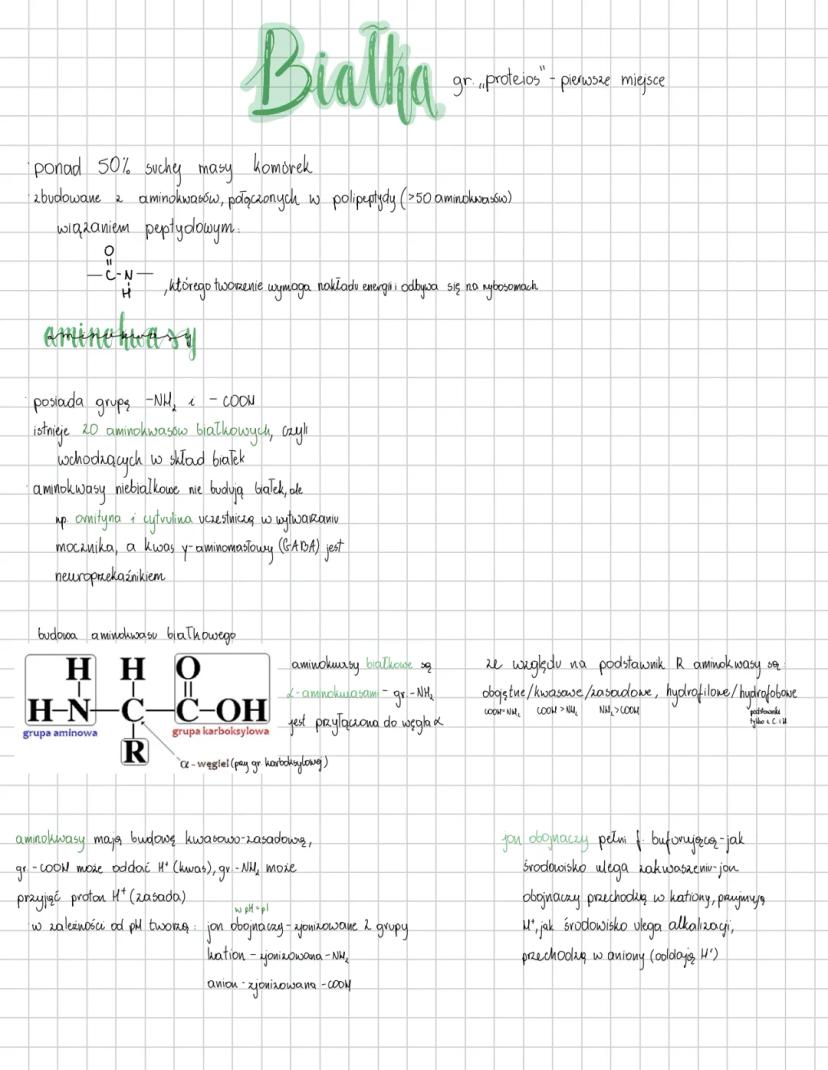 Białka gr. „proteios" - pierwsze miejsce
ponad 50% suchej masy komórek
zbudowane z aminokwasów, połączonych w polipeptydy (>50 aminokwasów)
wiązaniem peptydowym:
O
-C-N-
H
, którego tworzenie wymaga nakładu energii i odbywa się na rybosomach
aminokwasy
posiada grupę -NH₂ i -COOH
istnieje 20 aminokwasów białkowych, czyli
wchodzących w skład białek
aminokwasy niebiałkowe nie budują białek, ale
np. ornityna i cytrulina uczestniczą w wytwarzaniu
mocznika, a kwas γ-aminomasłowy (GABA) jest
neuroprzekaźnikiem
budowa aminokwasu białkowego
H H O
H-N-C-C-OH
grupa aminowa grupa karboksylowa
R
α-węgiel (przy gr. karboksylowej)
aminokwasy białkowe są
α-aminokwasami - gr. -NH₂
jest przyłączona do węgla α
ze względu na podstawnik R aminokwasy są:
obojętne/kwasowe/zasadowe, hydrofilowe/hydrofobowe
COOH=NH₂ COOH>NH₂ NH₂>COOH podstawnik
tylko z C i H
aminokwasy mają budowę kwasowo-zasadową,
gr. -COOH może oddać H⁺ (kwas), gr. -NH₂ może
przyjąć proton H⁺ (zasada)
w pH=pI
w zależności od pH tworzą: jon obojnaczy - zjonizowane 2 grupy
kation - zjonizowana -NH₂
anion - zjonizowana -COOH
jon obojnaczy pełni f. buforującą - jak
środowisko ulega zakwaszeniu - jon
obojnaczy przechodzą w kationy, przyjmują
H⁺, jak środowisko ulega alkalizacji,
przechodzą w aniony (oddają H⁺)